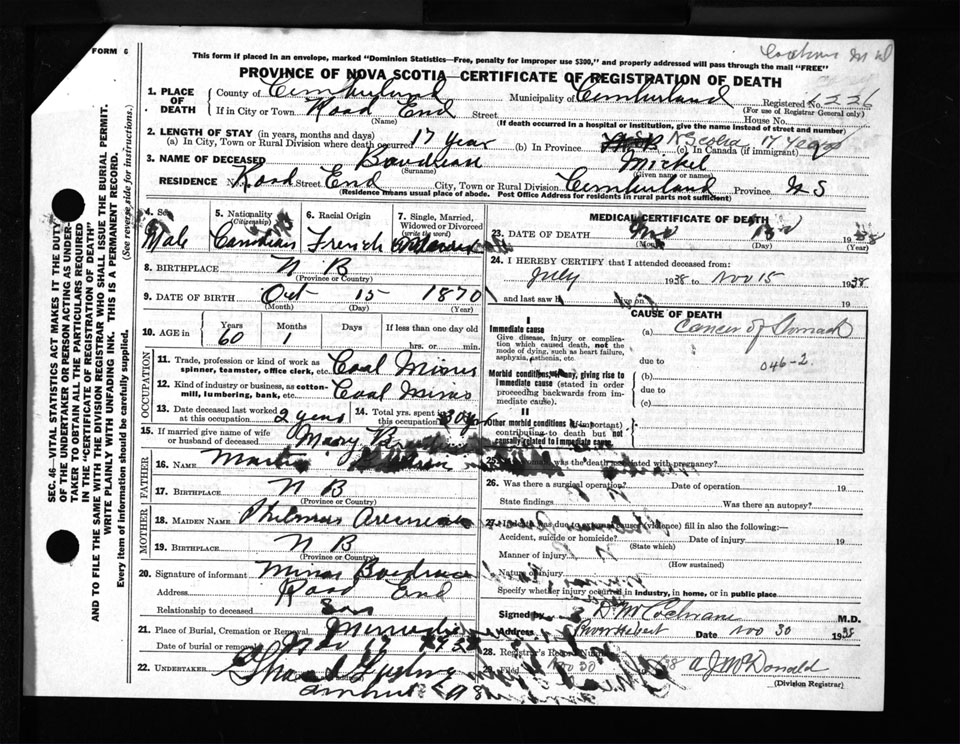 FORM 6
Cochrane M D
This form if placed in an envelope, marked "Dominion Statistics—Free, penalty for improper use $300," and properly addressed will pass through the mail "FREE"
PROVINCE OF NOVA SCOTIA—CERTIFICATE OF REGISTRATION OF DEATH
1. PLACE OF DEATH { County of Cumberland Municipality of Cumberland Registered No. 1226
(For use of Registrar General only)
If in City or Town Road End Street House No.
(Name) (If death occurred in a hospital or institution, give the name instead of street and number)
2. LENGTH OF STAY (in years, months and days)
(a) In City, Town or Rural Division where death occurred 17 Year (b) In Province N Scotia (c) In Canada (if immigrant) 17 Years
3. NAME OF DECEASED Boudreau Mickel
(Surname) (Given name or names)
RESIDENCE No. Road Street End City, Town or Rural Division Cumberland Province N S
(Residence means usual place of abode. Post Office Address for residents in rural parts not sufficient)
4. Sex Male
5. Nationality (Citizenship) Canadian
6. Racial Origin French
7. Single, Married, Widowed or Divorced (write the word)
8. BIRTHPLACE N B
(Province or Country)
9. DATE OF BIRTH Oct 15 1870
(Month) (Day) (Year)
10. AGE in { Years 60 Months 1 Days If less than one day old hrs. or min.
OCCUPATION
11. Trade, profession or kind of work as spinner, teamster, office clerk, etc. Coal Mines
12. Kind of industry or business, as cotton-mill, lumbering, bank, etc. Coal Mines
13. Date deceased last worked at this occupation 2 years
14. Total yrs. spent in this occupation 30 yrs
15. If married give name of wife or husband of deceased Mary B
FATHER
16. NAME Martin
17. BIRTHPLACE N B
(Province or Country)
MOTHER
18. MAIDEN NAME
19. BIRTHPLACE N B
(Province or Country)
20. Signature of informant
Address Road End
Relationship to deceased Son
21. Place of Burial, Cremation or Removal
Date of burial or removal
22. UNDERTAKER
MEDICAL CERTIFICATE OF DEATH
23. DATE OF DEATH 1938
(Month) (Day) (Year)
24. I HEREBY CERTIFY that I attended deceased from:
July 1938 to Nov 15 1938
and last saw h alive on 19
CAUSE OF DEATH
I
Immediate cause
Give disease, injury or complication which caused death, not the mode of dying, such as heart failure, asphyxia, asthenia, etc.
(a) Cancer of Stomach
due to
046-2
Morbid conditions, if any, giving rise to immediate cause (stated in order proceeding backwards from immediate cause).
(b)
due to
(c)
II
Other morbid conditions (if important) contributing to death but not causally related to immediate cause.
25. If a woman, was the death associated with pregnancy?
26. Was there a surgical operation? Date of operation 19
State findings Was there an autopsy?
27. If death was due to external causes (violence) fill in also the following:
Accident, suicide or homicide? Date of injury 19
(State which)
Manner of injury
(How sustained)
Nature of injury
Specify whether injury occurred in industry, in home, or in public place
Signed by D. M Cochrane M.D.
Address River Hebert Date Nov 30 1938
28. Registrar's Record Number
Filed Nov 30 1938 A J McDonald
(Division Registrar)
SEC. 46—VITAL STATISTICS ACT MAKES IT THE DUTY
OF THE UNDERTAKER OR PERSON ACTING AS UNDER-
TAKER TO OBTAIN ALL THE PARTICULARS REQUIRED
IN THE "CERTIFICATE OF REGISTRATION OF DEATH"
AND TO FILE THE SAME WITH THE DIVISION REGISTRAR WHO SHALL ISSUE THE BURIAL PERMIT.
WRITE PLAINLY WITH UNFADING INK. THIS IS A PERMANENT RECORD.
Every item of information should be carefully supplied. (See reverse side for instructions.)